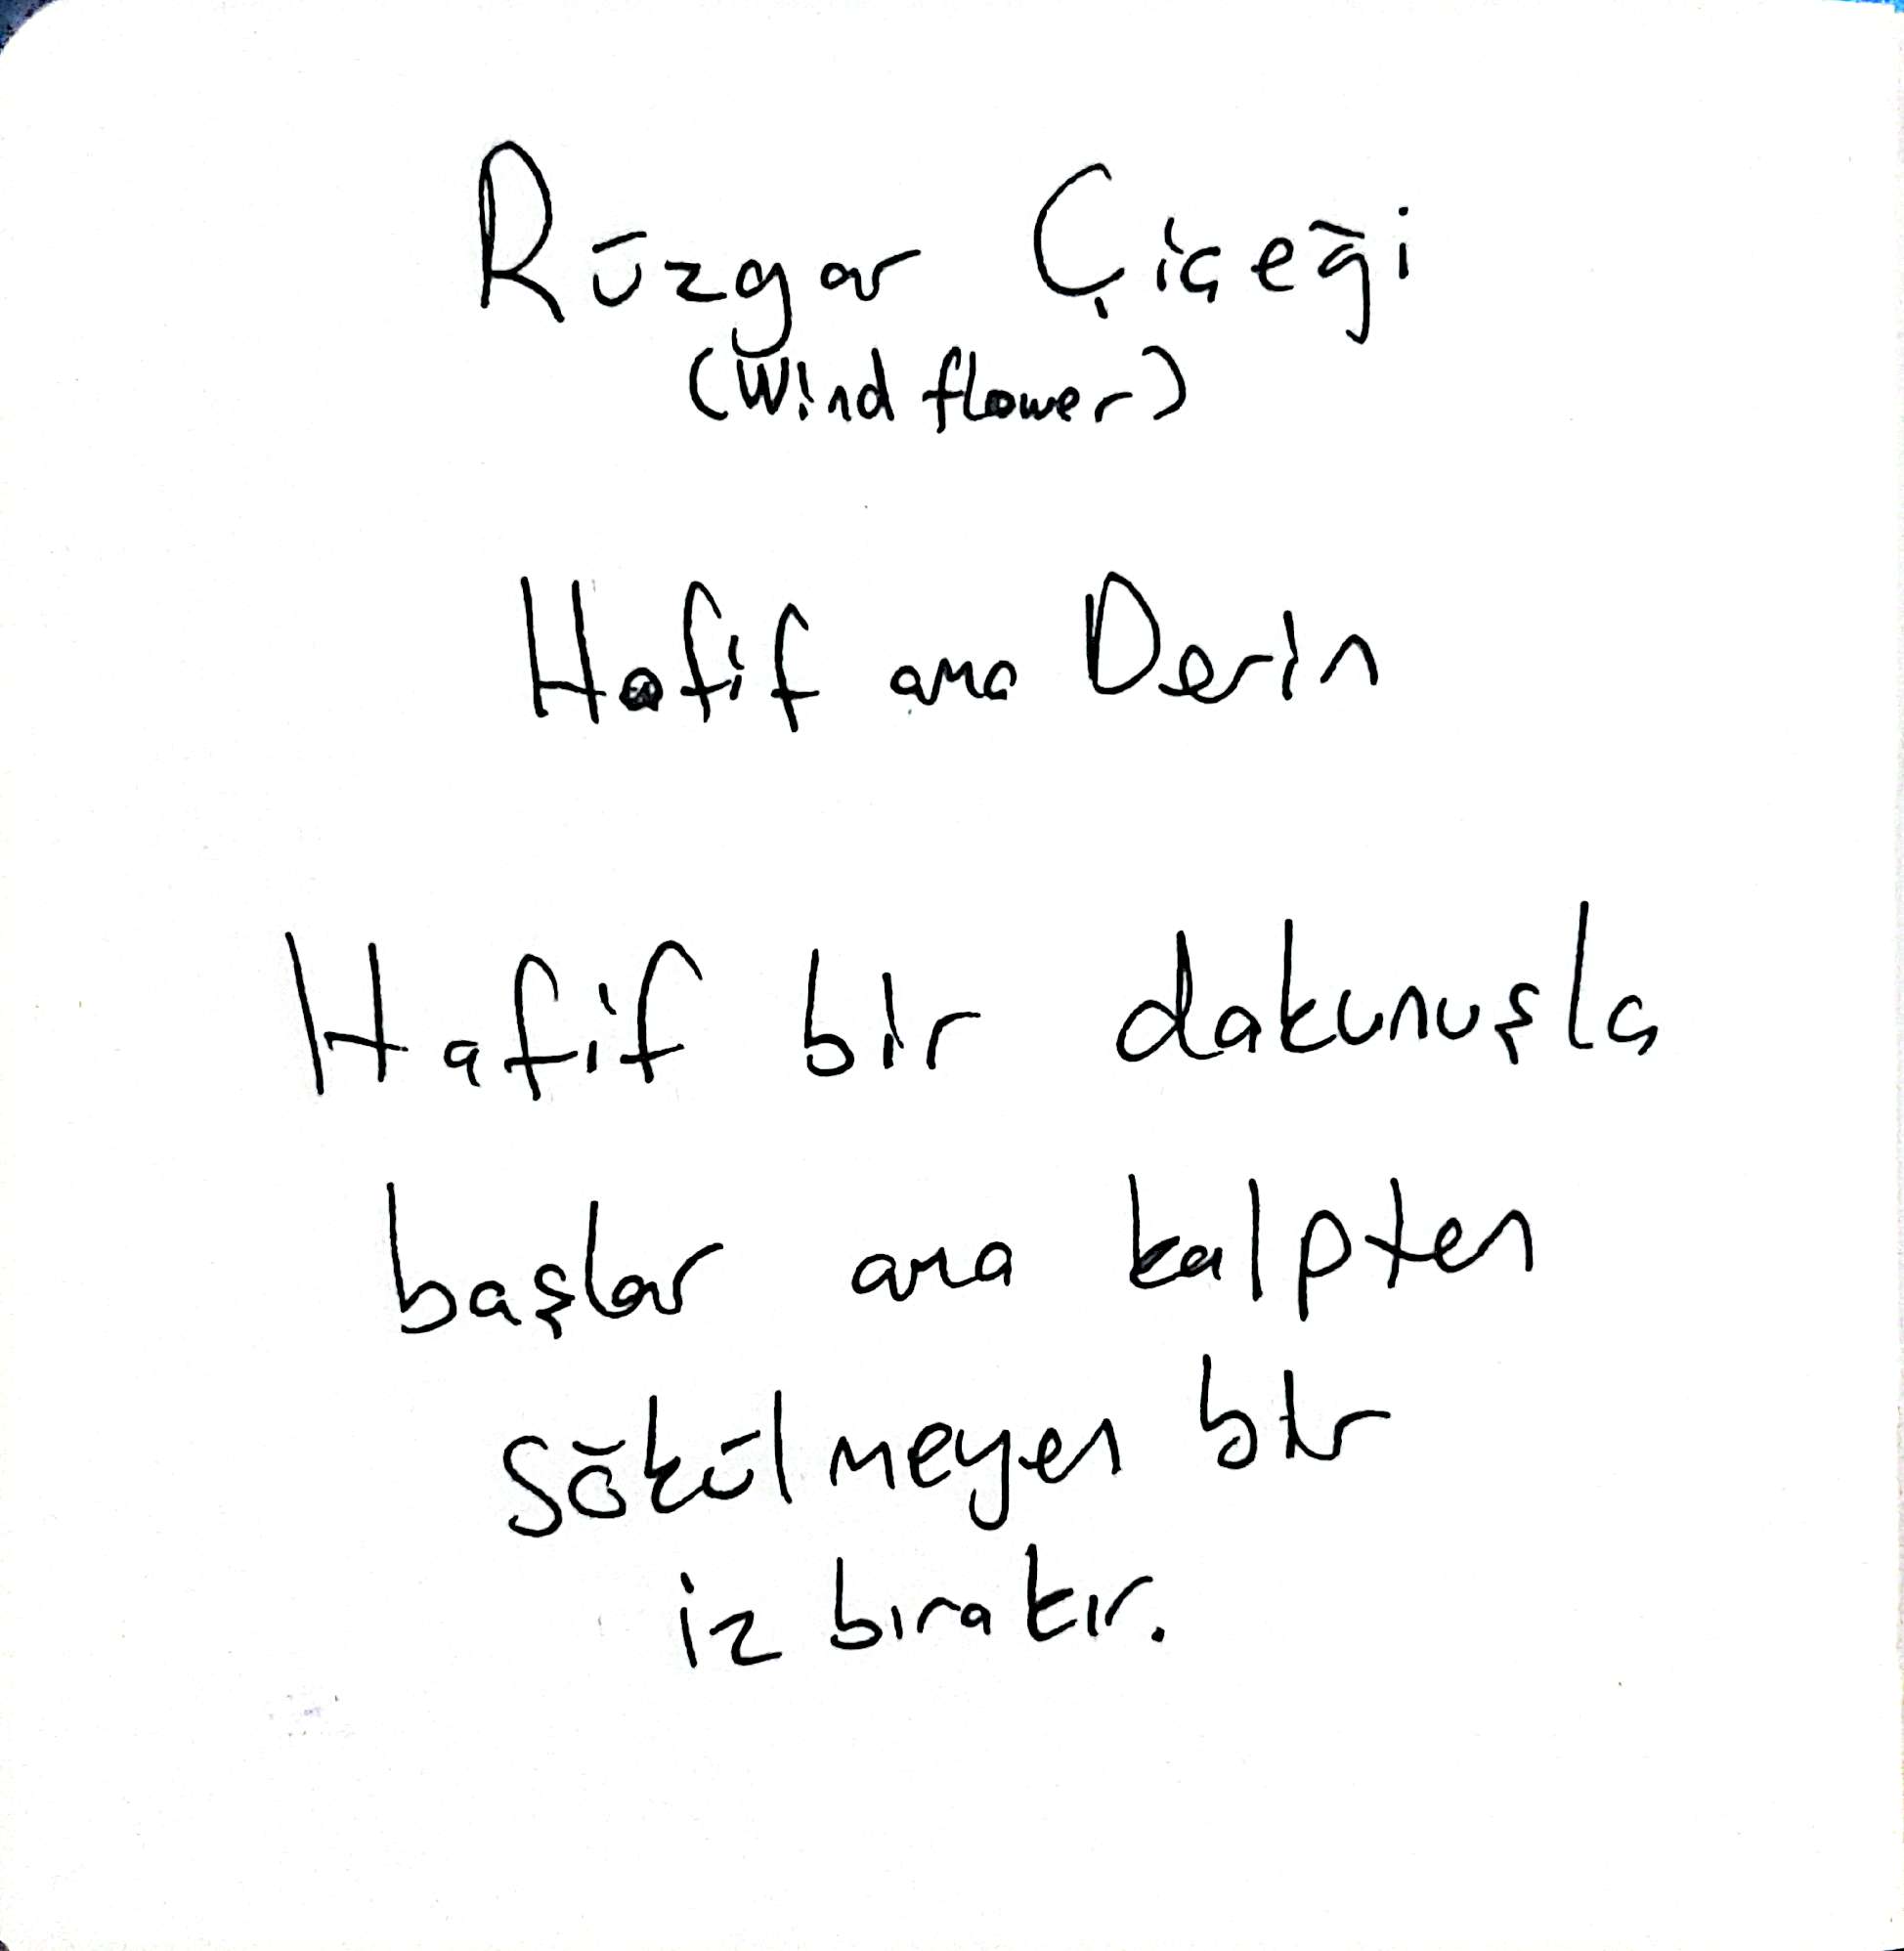 Rüzgar Çiçeği
(Wind flower)
Hafif ama Derin
Hafif bir dokunuşla
başlar ama kalpten
sökülmeyen bir
iz bırakır.